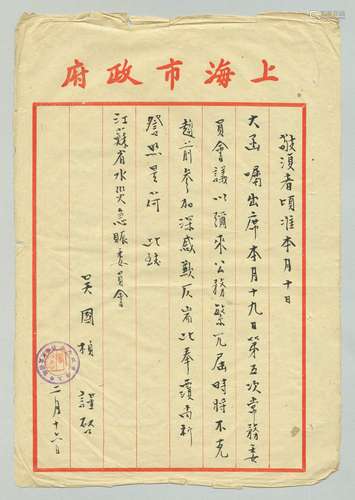 上海市政府
敬須者頃准本月十日
大函囑出席本月十九日第五次常務委
員會議以頃來公務繁冗屆時將不克
趨前參加深感歉仄耑此奉覆尚祈
詧照是荷 此致
江蘇省水災急賑委員會
吳國楨 謹啓
二月十六日